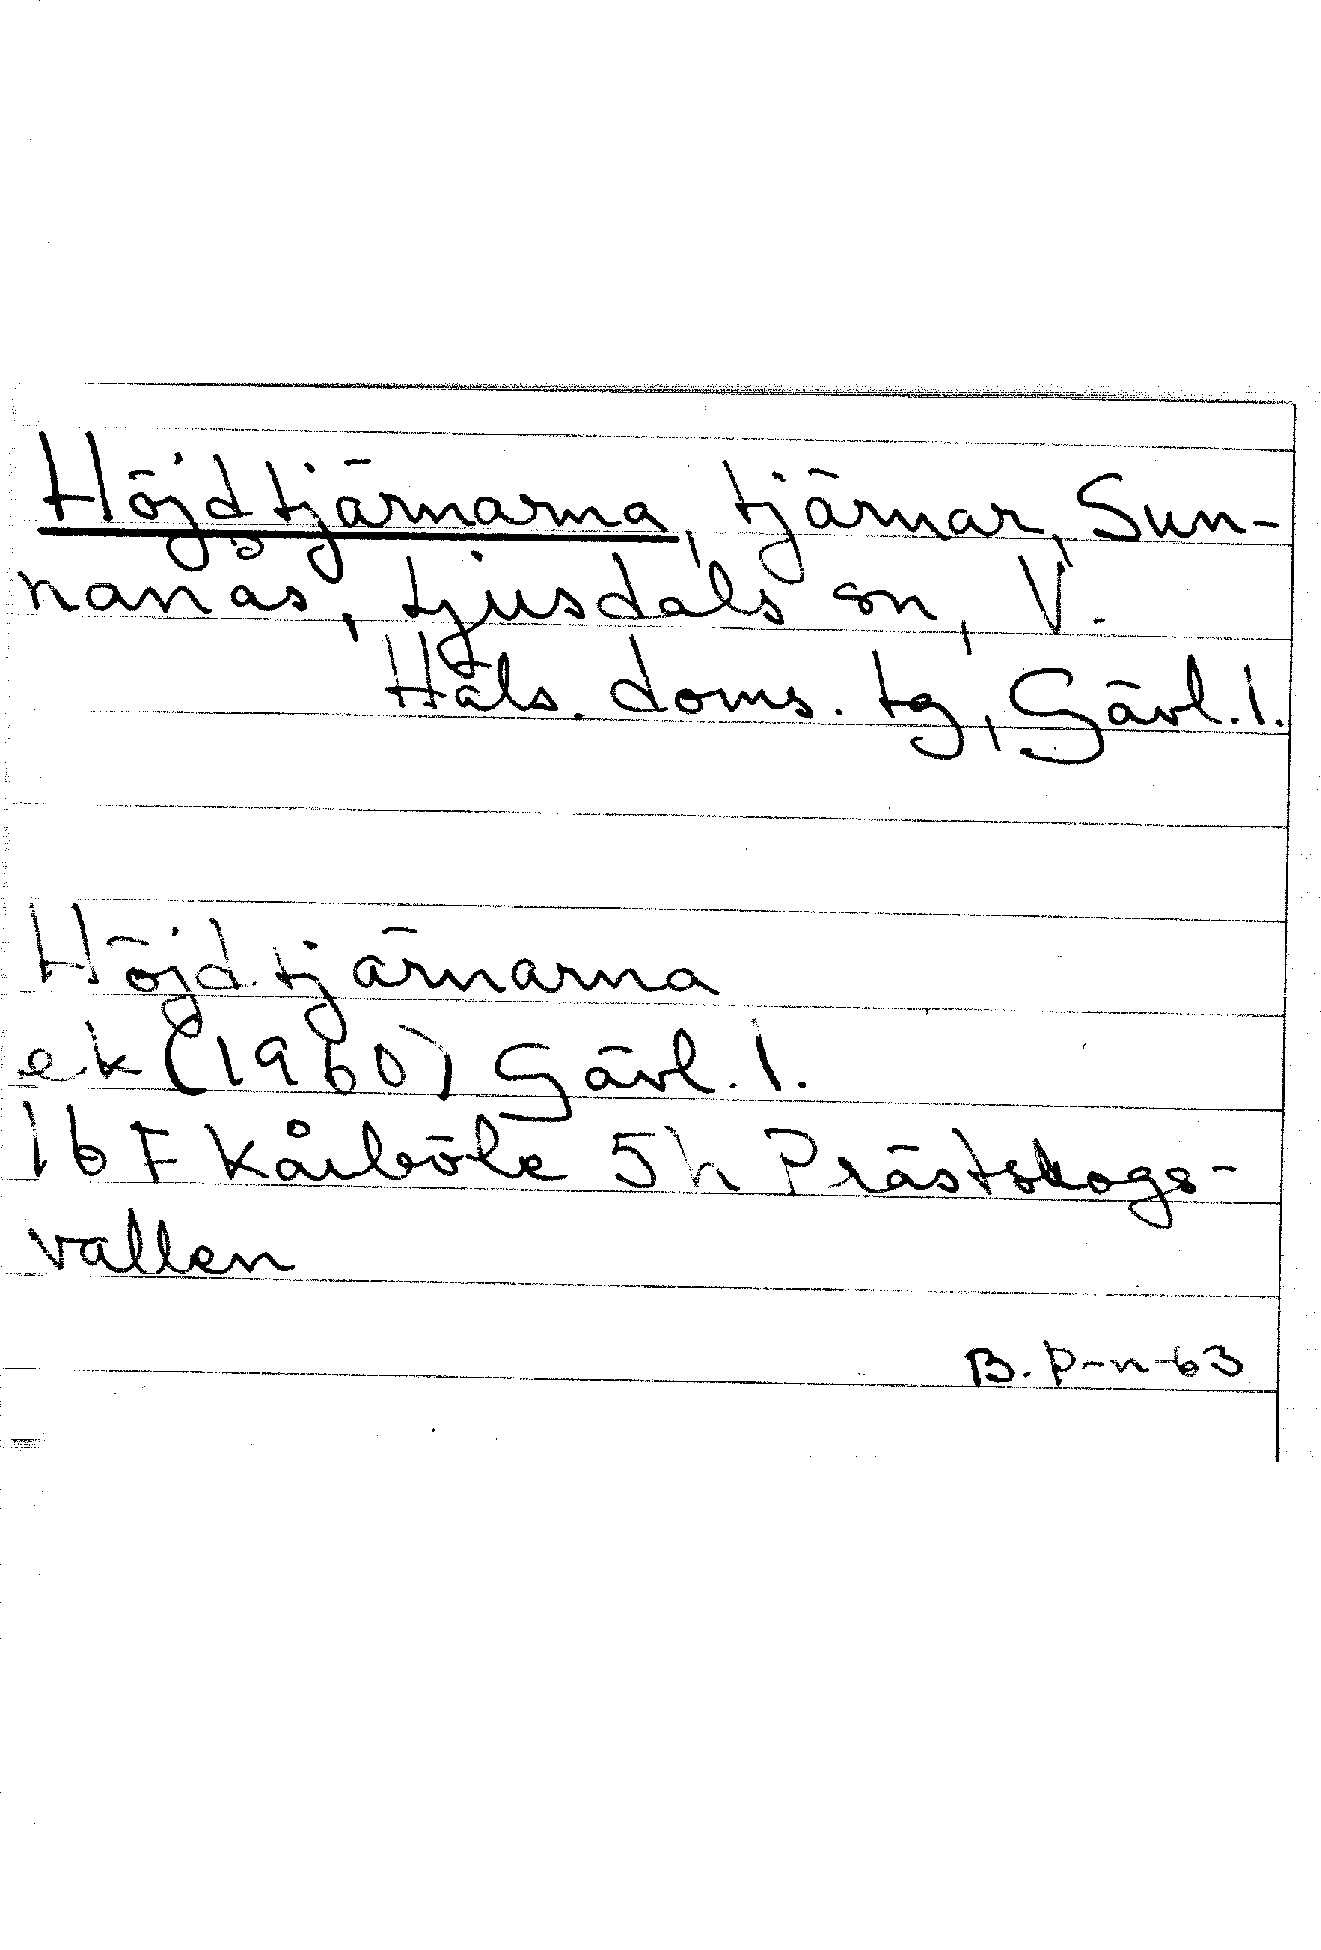 Höjdtjärnarna, tjärnar, Sun-
nanås, Ljusdals sn, V.
Häls. doms. tg, Gävl. l.
Höjdtjärnarna
ek (1960) Gävl. l.
16 F Kårböle 5h Prästskogs-
vallen
B. P-n-63